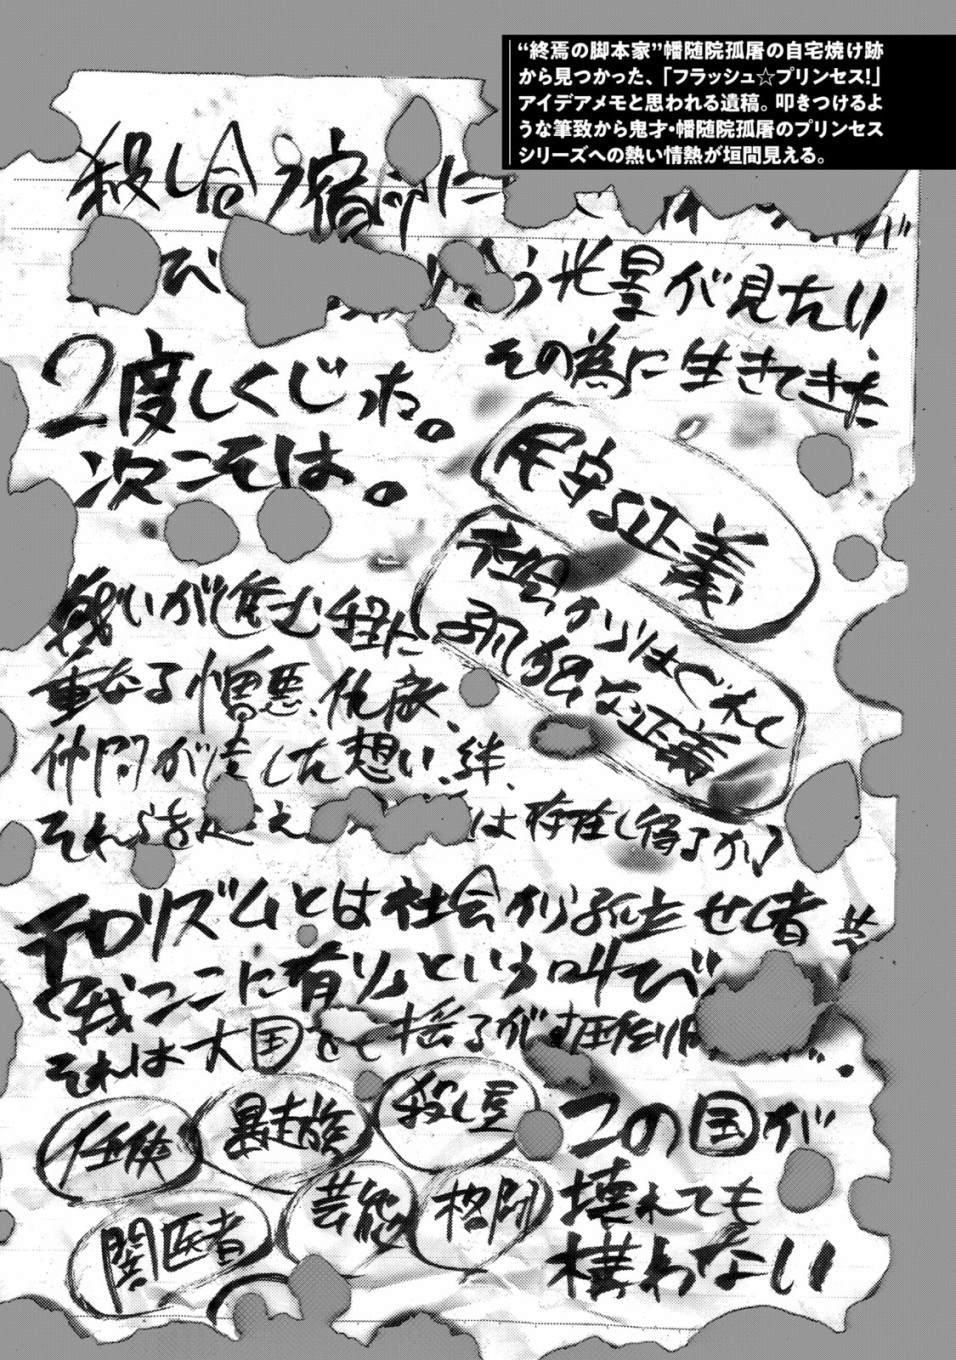 “終焉の脚本家”幡随院孤屠の自宅焼け跡
から見つかった、「フラッシュ☆プリンセス!」
アイデアメモと思われる遺稿。叩きつけるよ
うな筆致から鬼才・幡随院孤屠のプリンセス
シリーズへの熱い情熱が垣間見える。
殺し合う宿命に
が
び う光景が見たい
その為に生きてきた
2度しくじった。
次こそは。
保守な正義
社会からはぐれし
孤独な正義
戦いが進む程に
重なる憎悪、仇敵、
仲間が遺した想い、絆、
それらを超え は存在し得るか?
テロリズムとは社会から孤立せし者共
「我ここに有り」という叫び
それは大国をも揺るがす圧倒
任侠
暴走族
殺し屋
闇医者
芸能
格闘
この国が
壊れても
構わない